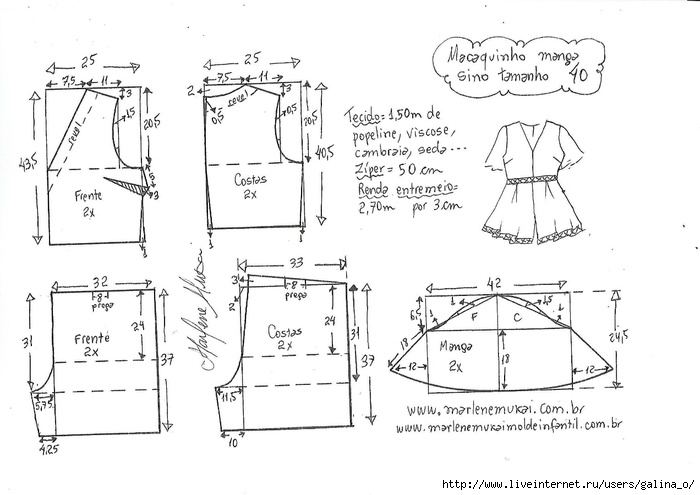 Macaquinho manga
sino tamanho 40
Tecido= 1,50m de
popeline, viscose,
cambraia, seda...
Zíper = 50 cm
Renda entremeio=
2,70m por 3 cm
25
7,5 11
3
1,5
revel
20,5
43,5
5
3
Frente
2x
1
25
7,5 11
2
3
0,5
revel
0,5
20,5
40,5
Costas
2x
1 1
32
8
prega
31
Frente
2x
24
37
5,75
4,25
33
3
8
prega
2
Costas
2x
24
31
37
11,5
10
Marlene Mukai
42
6,5
1
1
1,5
1
F C
18
Manga
2x
18
12 12
24,5
www.marlenemukai.com.br
www.marlenemukaimoldeinfantil.com.br
http://www.liveinternet.ru/users/galina_o/